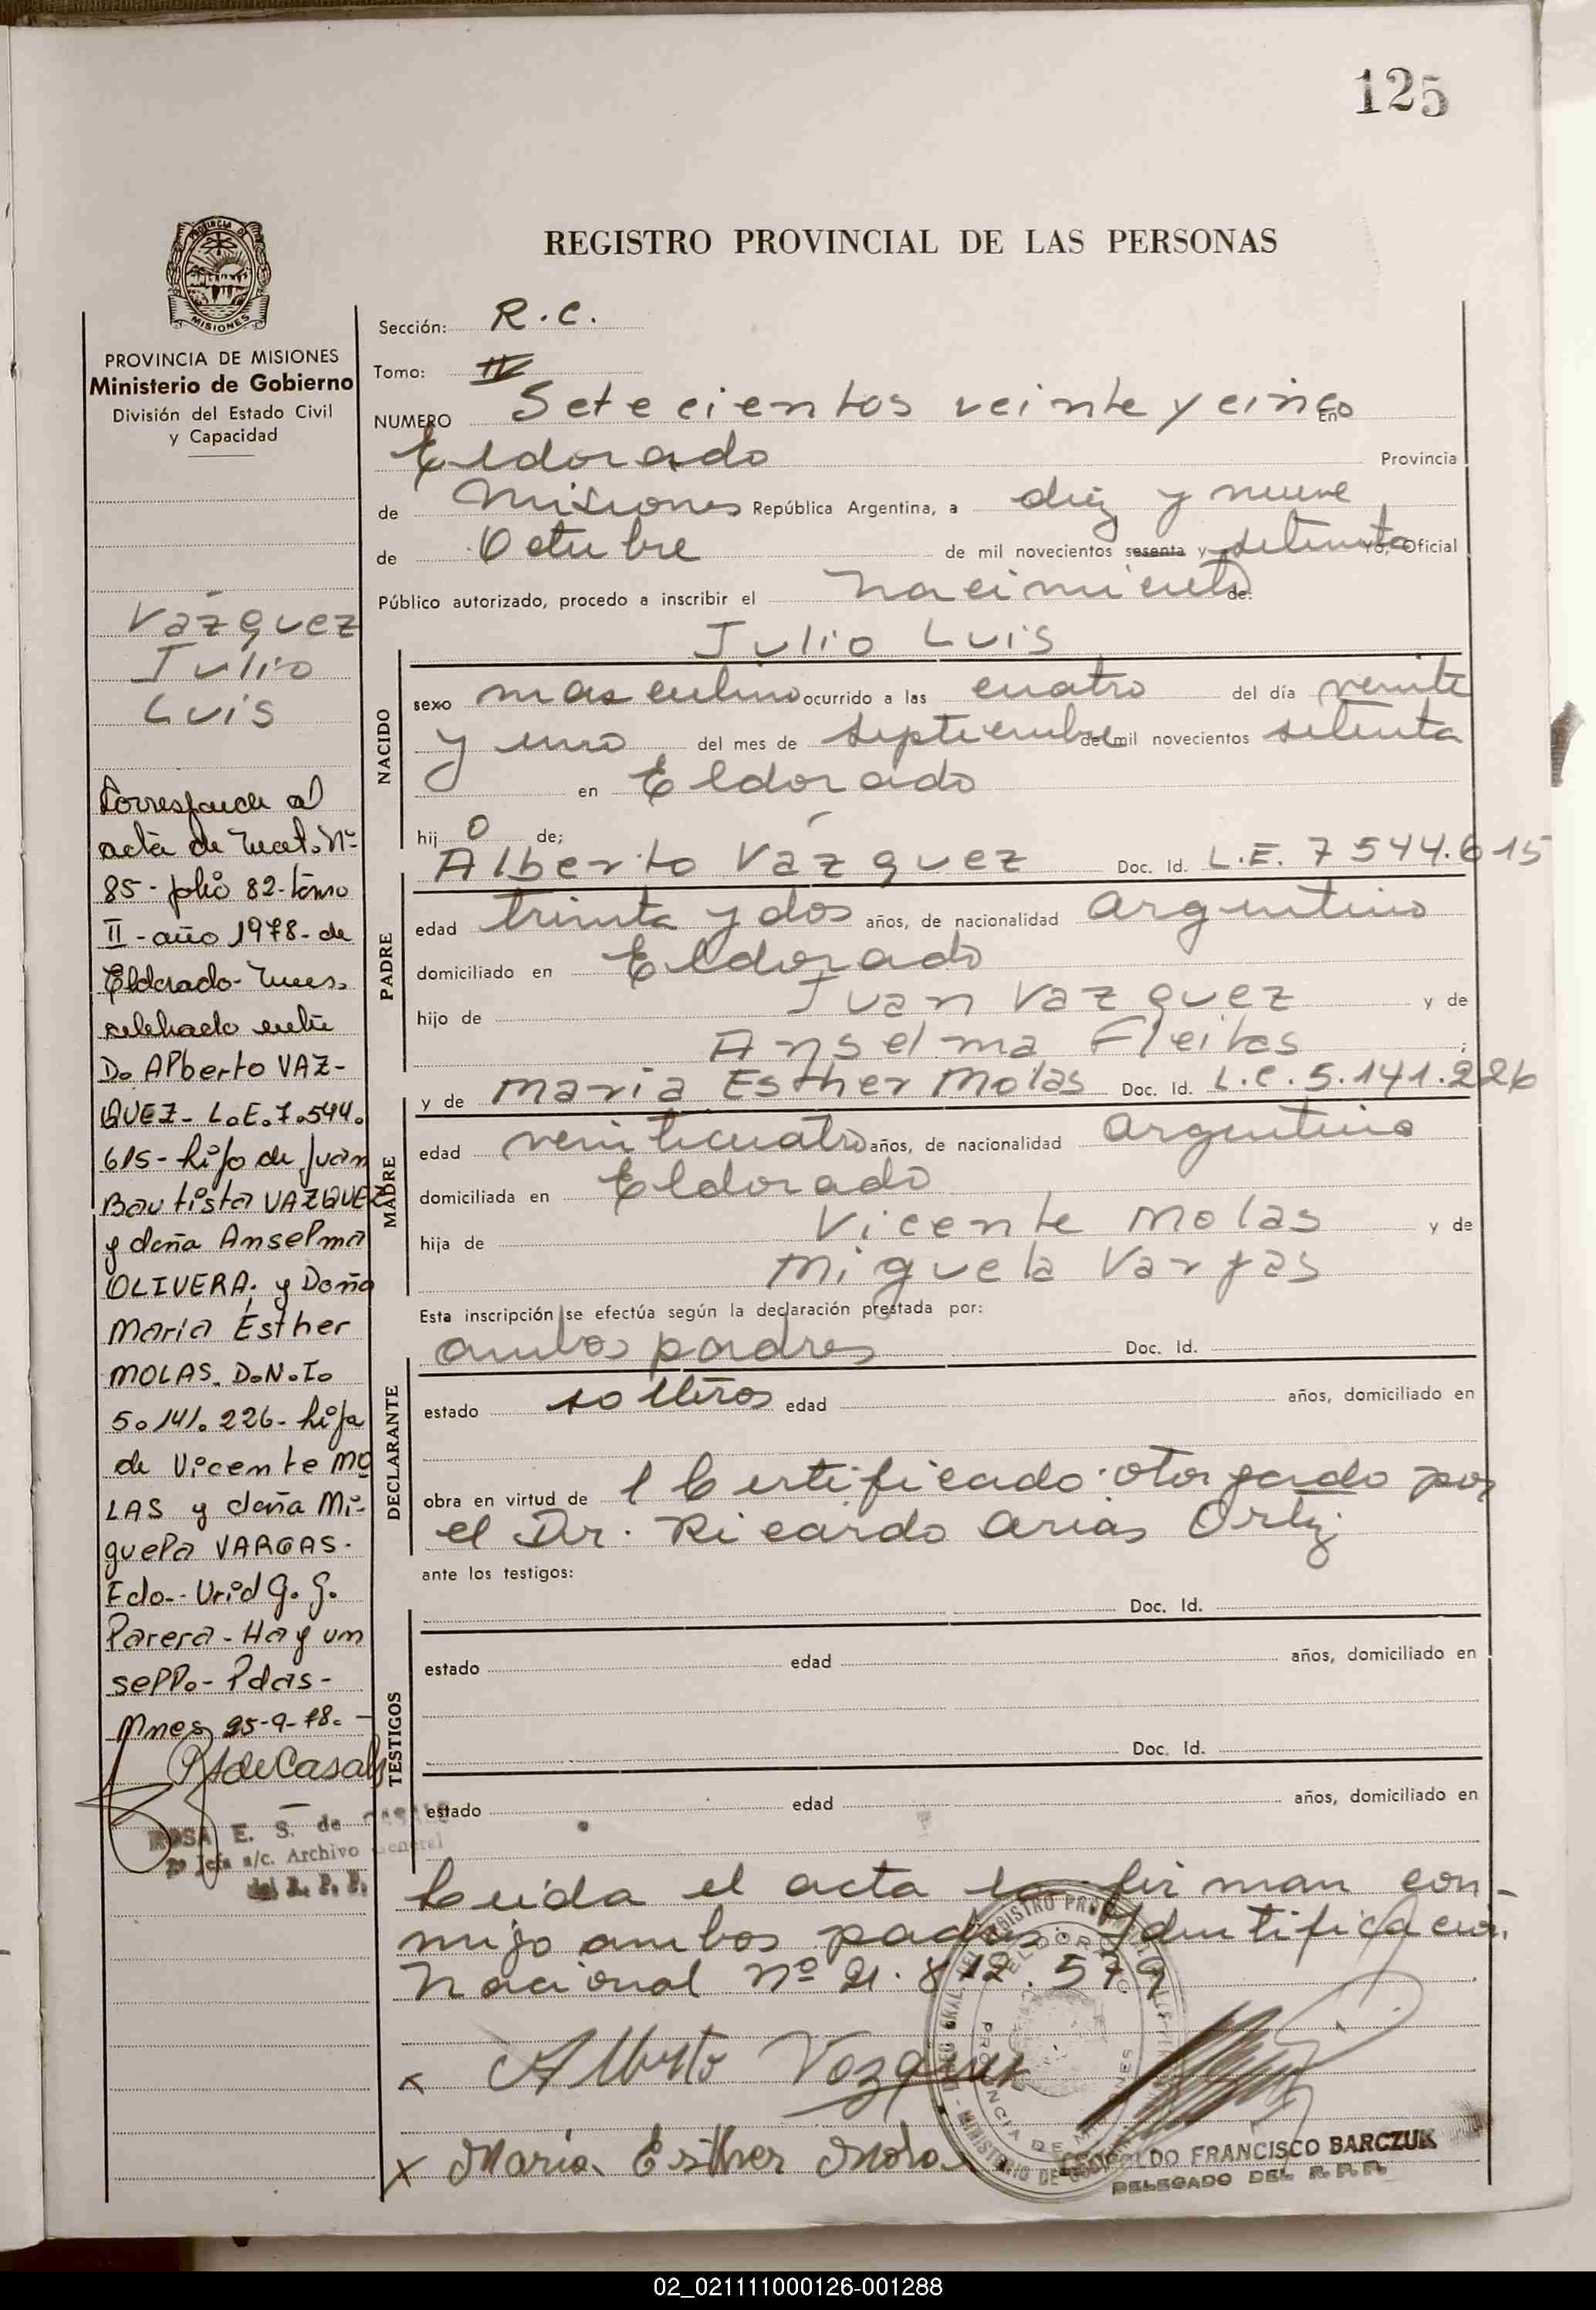 125
PROVINCIA DE
MISIONES
PROVINCIA DE MISIONES
Ministerio de Gobierno
División del Estado Civil
y Capacidad
Vázquez
Julio
Luis
Corresponde al
acta de Mat. Nº
85 - folio 82 - tomo
II - año 1978 - de
Eldorado - Mnes.
celebrado entre
Do Alberto VAZ-
QUEZ - L.E. 7.544.
615 - hijo de Juan
Bautista VAZQUEZ
y doña Anselma
OLIVERA; y Doña
Maria Esther
MOLAS. D.N.I.
5.141.226 - hija
de Vicente MO
LAS y doña Mi-
guela VARGAS.
Fdo.- G. G.
Parera - Hay un
sello - Pdas -
Mnes 25-9-78. -
de Casals
ROSA E. S. de CASALS
Jefa a/c. Archivo General
del R. P. P.
REGISTRO PROVINCIAL DE LAS PERSONAS
Sección: R.C.
Tomo: IV
NUMERO Setecientos veinte y cinco En
Eldorado Provincia
de Misiones República Argentina, a diez y nueve
de Octubre de mil novecientos sesenta y setenta yo, Oficial
Público autorizado, procedo a inscribir el nacimiento de:
Julio Luis
NACIDO
sexo masculino ocurrido a las cuatro del día veinte
y uno del mes de septiembre de mil novecientos setenta
en Eldorado
hij o de;
Alberto Vázquez Doc. Id. L.E. 7544.615
PADRE
edad treinta y dos años, de nacionalidad Argentino
domiciliado en Eldorado
hijo de Juan Vazquez y de
Anselma Fleitas ;
y de Maria Esther Molas Doc. Id. L.C. 5.141.226
MADRE
edad veinticuatro años, de nacionalidad Argentina
domiciliada en Eldorado
hija de Vicente Molas y de
Miguela Vargas
Esta inscripción se efectúa según la declaración prestada por:
ambos padres Doc. Id.
DECLARANTE
estado solteros edad años, domiciliado en
obra en virtud de l Certificado otorgado por
el Dr. Ricardo Arias Ortiz
ante los testigos:
Doc. Id.
TESTIGOS
estado edad años, domiciliado en
Doc. Id.
estado edad años, domiciliado en
Leida el acta la firman con-
migo ambos padres. Identificacion
Nacional Nº 21.812.579
x Alberto Vazquez
x Maria Esther Molas
ELDORADO
PROVINCIA DE MISIONES
LEOPOLDO FRANCISCO BARCZUK
DELEGADO DEL R.P.P.
02_021111000126-001288